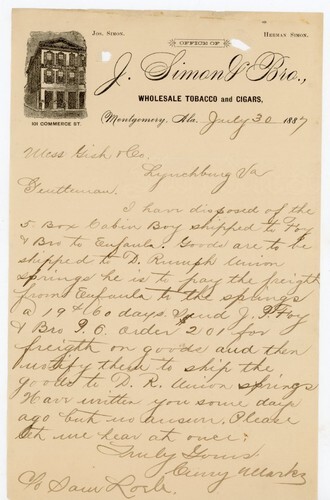 Jos. Simon.
Herman Simon.
OFFICE OF
J. Simon & Bro.,
WHOLESALE TOBACCO and CIGARS,
101 COMMERCE ST.
Montgomery, Ala. July 30 1887
Mess Gish & Co.
Lynchburg Va
Gentleman.
I have disposed of the
5 Box Cabin Boy shipped to Foy
& Bro to Eufaula. Goods are to be
shipped to D. Rumph Union
Springs he is to pay the freigth
from Eufaula to the springs
a 19 & 60 days. Send J. P. Foy
& Bro P. O. order $2.01 for
freigth on goods and then
notify them to ship the
goods to D. R. Union Springs
Have written you some days
ago but no answer. Please
let me hear at once.
Truly Yours
Marks